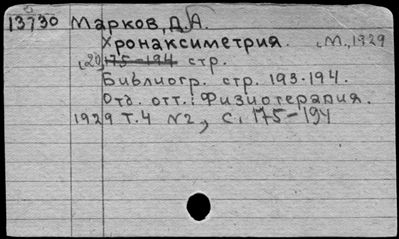 13730 Марков, Д.А.
Хронаксиметрия. [М., 1929
[20] 175-194 стр.
Библиогр. стр. 193-194.
Отд. отт.: Физиотерапия.
1929 Т.4 №2, с. 175-194